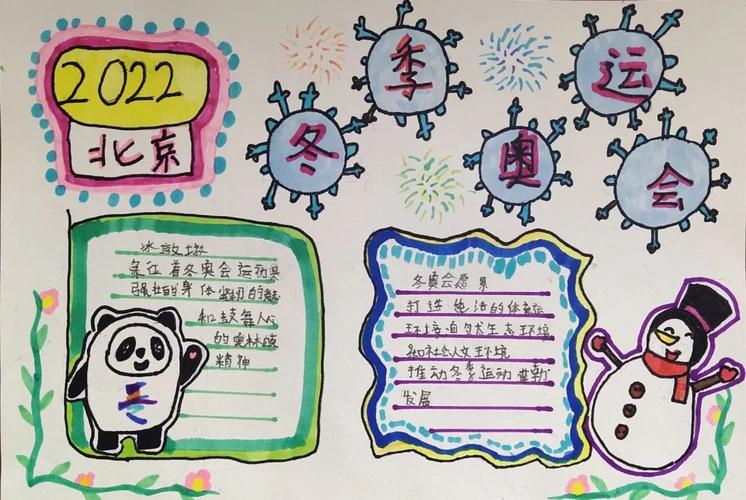 2022
北京
冬季奥运会
冰墩墩
象征着冬奥会运动员
强壮的身体坚韧的意志
和鼓舞人心
的奥林
精神
冬奥会愿景
打造纯洁的体
环境自然生态环境
和社会人文环境
推动冬季运动蓬勃
发展